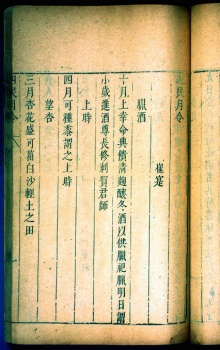 民月令
崔寔
臘酒
十月上辛命典饋漬麴釀冬酒以供臘祀臘明日謂
小歲進酒尊長修刺賀君師
上時
四月可種黍謂之上時
望杏
三月杏花盛可菑白沙輕土之田
四民月令